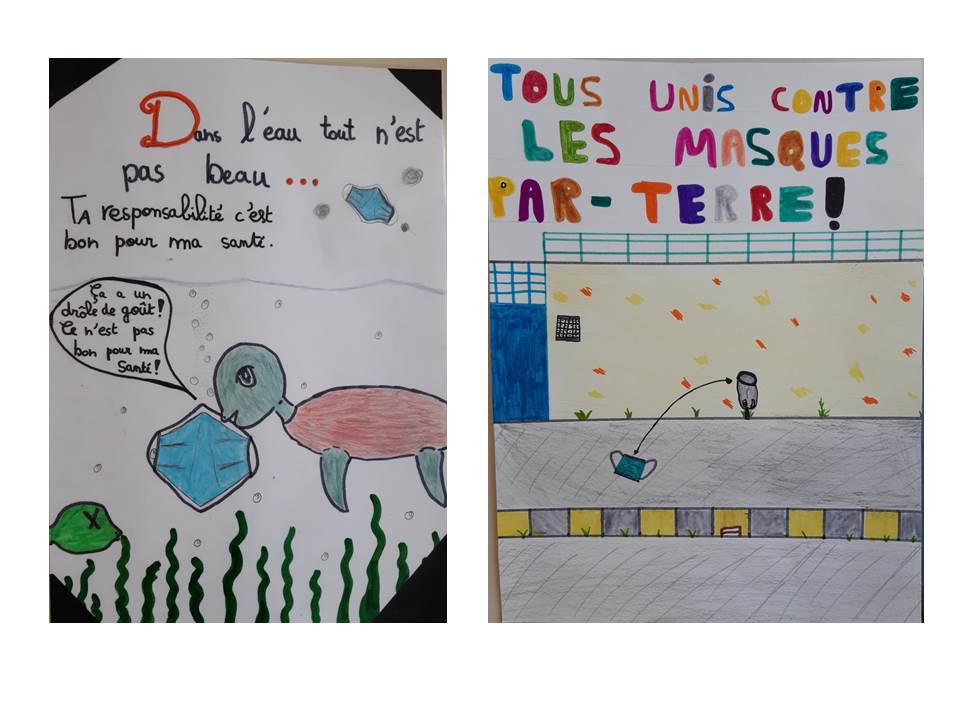 Dans l'éau tout n'est
pas beau...
TA responsabilité c'est
bon pour ma santé.
Ça a un
drôle de goût!
Ce n'est pas
bon pour ma
Santé!
TOUS UNiS CONTRE
LES MASQUES
PAR-TERRE!